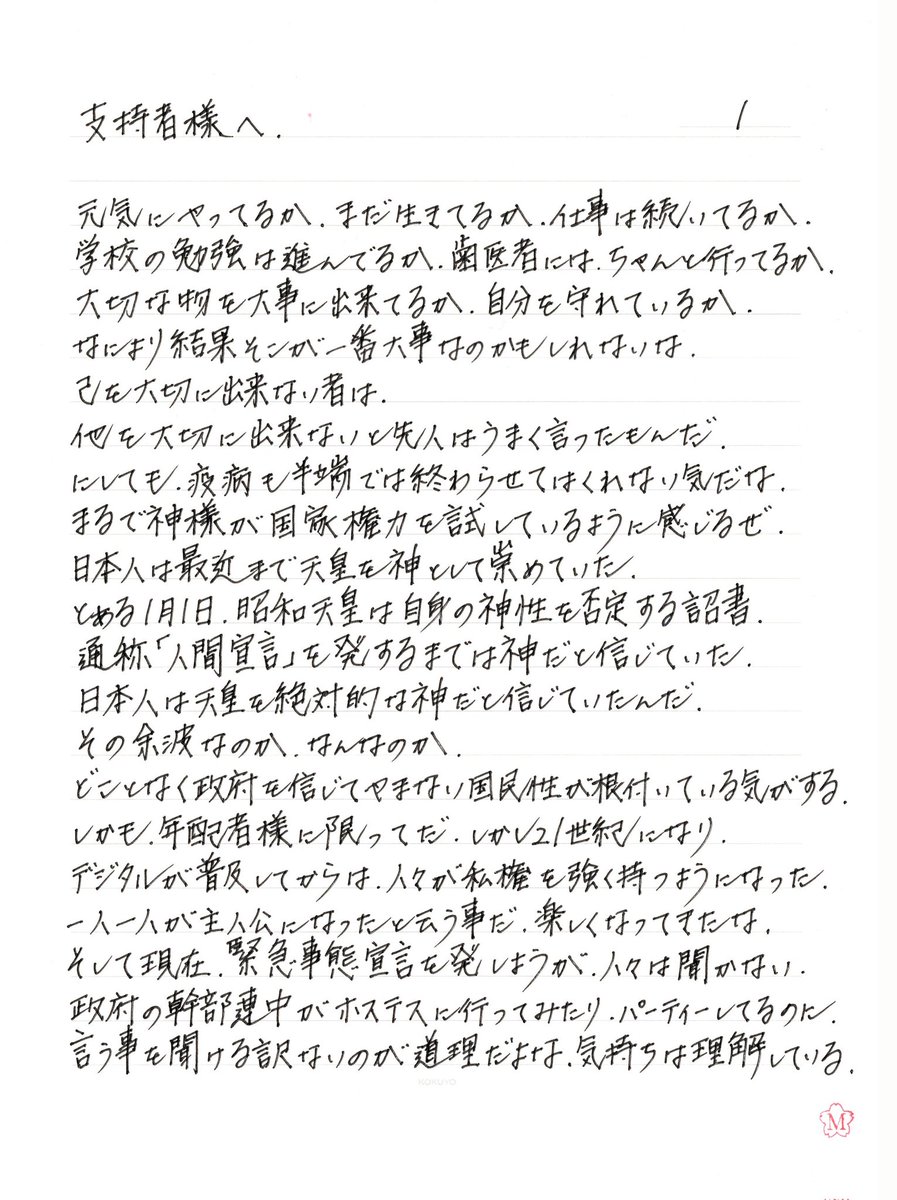 支持者様へ.
1
元気にやってるか.まだ生きてるか.仕事は続いてるか.
学校の勉強は進んでるか.歯医者には.ちゃんと行ってるか.
大切な物を大事に出来てるか.自分を守れているか.
なにより結果そこが一番大事なのかもしれないな.
己を大切に出来ない者は.
他を大切に出来ないと先人はうまく言ったもんだ.
にしても.疫病も半端では終わらせてはくれない気だな.
まるで神様が国家権力を試しているように感じるぜ.
日本人は最近まで天皇を神として崇めていた.
とある1月1日.昭和天皇は自身の神性を否定する詔書.
通称「人間宣言」を発するまでは神だと信じていた.
日本人は天皇を絶対的な神だと信じていたんだ.
その余波なのか.なんなのか.
どことなく政府を信じてやまない国民性が根付いている気がする.
しかも.年配者様に限ってだ.しかし21世紀になり.
デジタルが普及してからは.人々が私権を強く持つようになった.
一人一人が主人公になったと云う事だ.楽しくなってきたな.
そして現在.緊急事態宣言を発しようが.人々は聞かない.
政府の幹部連中がホステスに行ってみたり.パーティーしてるのに.
言う事を聞ける訳ないのが道理だよな.気持ちは理解している.
KOKUYO
M